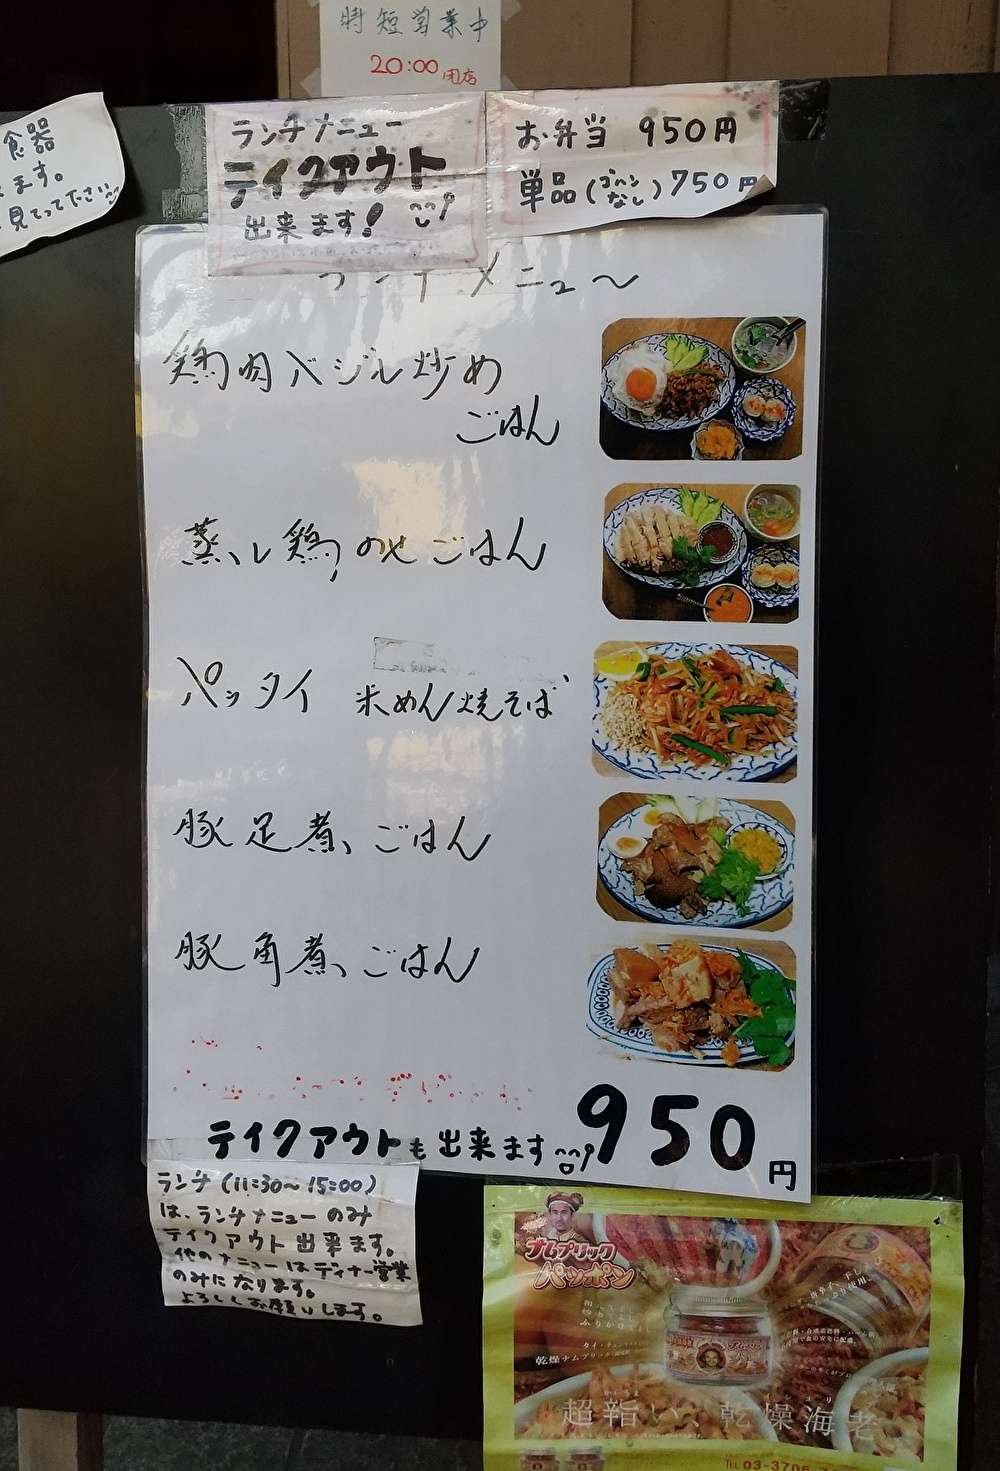 時短営業中
20:00 閉店
食器
ます。
見てって下さい
ランチメニュー
テイクアウト
出来ます!
お弁当 950円
単品(ゴハンなし)750円
ランチメニュー
鶏肉バジル炒め
ごはん
蒸し鶏のせごはん
パッタイ 米めん焼そば
豚足煮ごはん
豚角煮ごはん
テイクアウトも出来ます
950円
ランチ(11:30~15:00)
は、ランチメニューのみ
テイクアウト出来ます。
他のメニューはディナー営業
のみになります。
よろしくお願いします。
ナムプリック
パッポン
ふりかけ
乾燥ナムプリック
超辛い、乾燥海老
TEL 03-3706